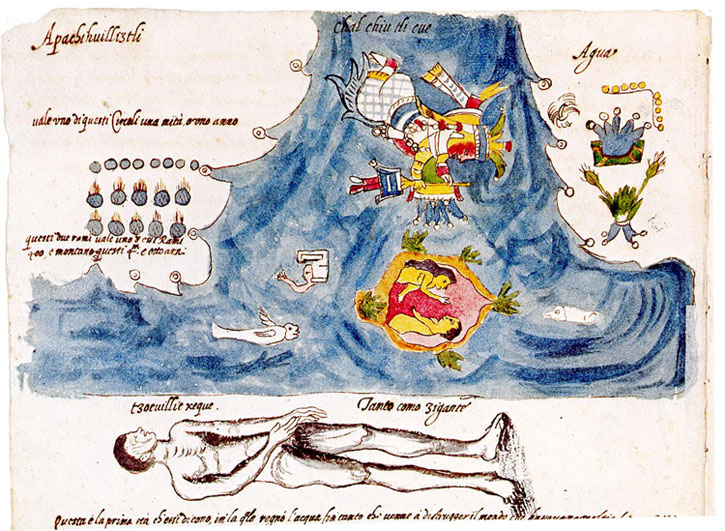 Apachihuiliztli
Chal chiu tli cue
Agua
vale uno di questi Circoli una mità, o vno anno
questi due rami vale uno
400 e montano questi
e otto anni
tzocuillic xeque.
Tanto como gigante
Questa è la prima età ch'essi dicono, in la qle regnò l'acqua fin tanto che venne à distrugger il mondo